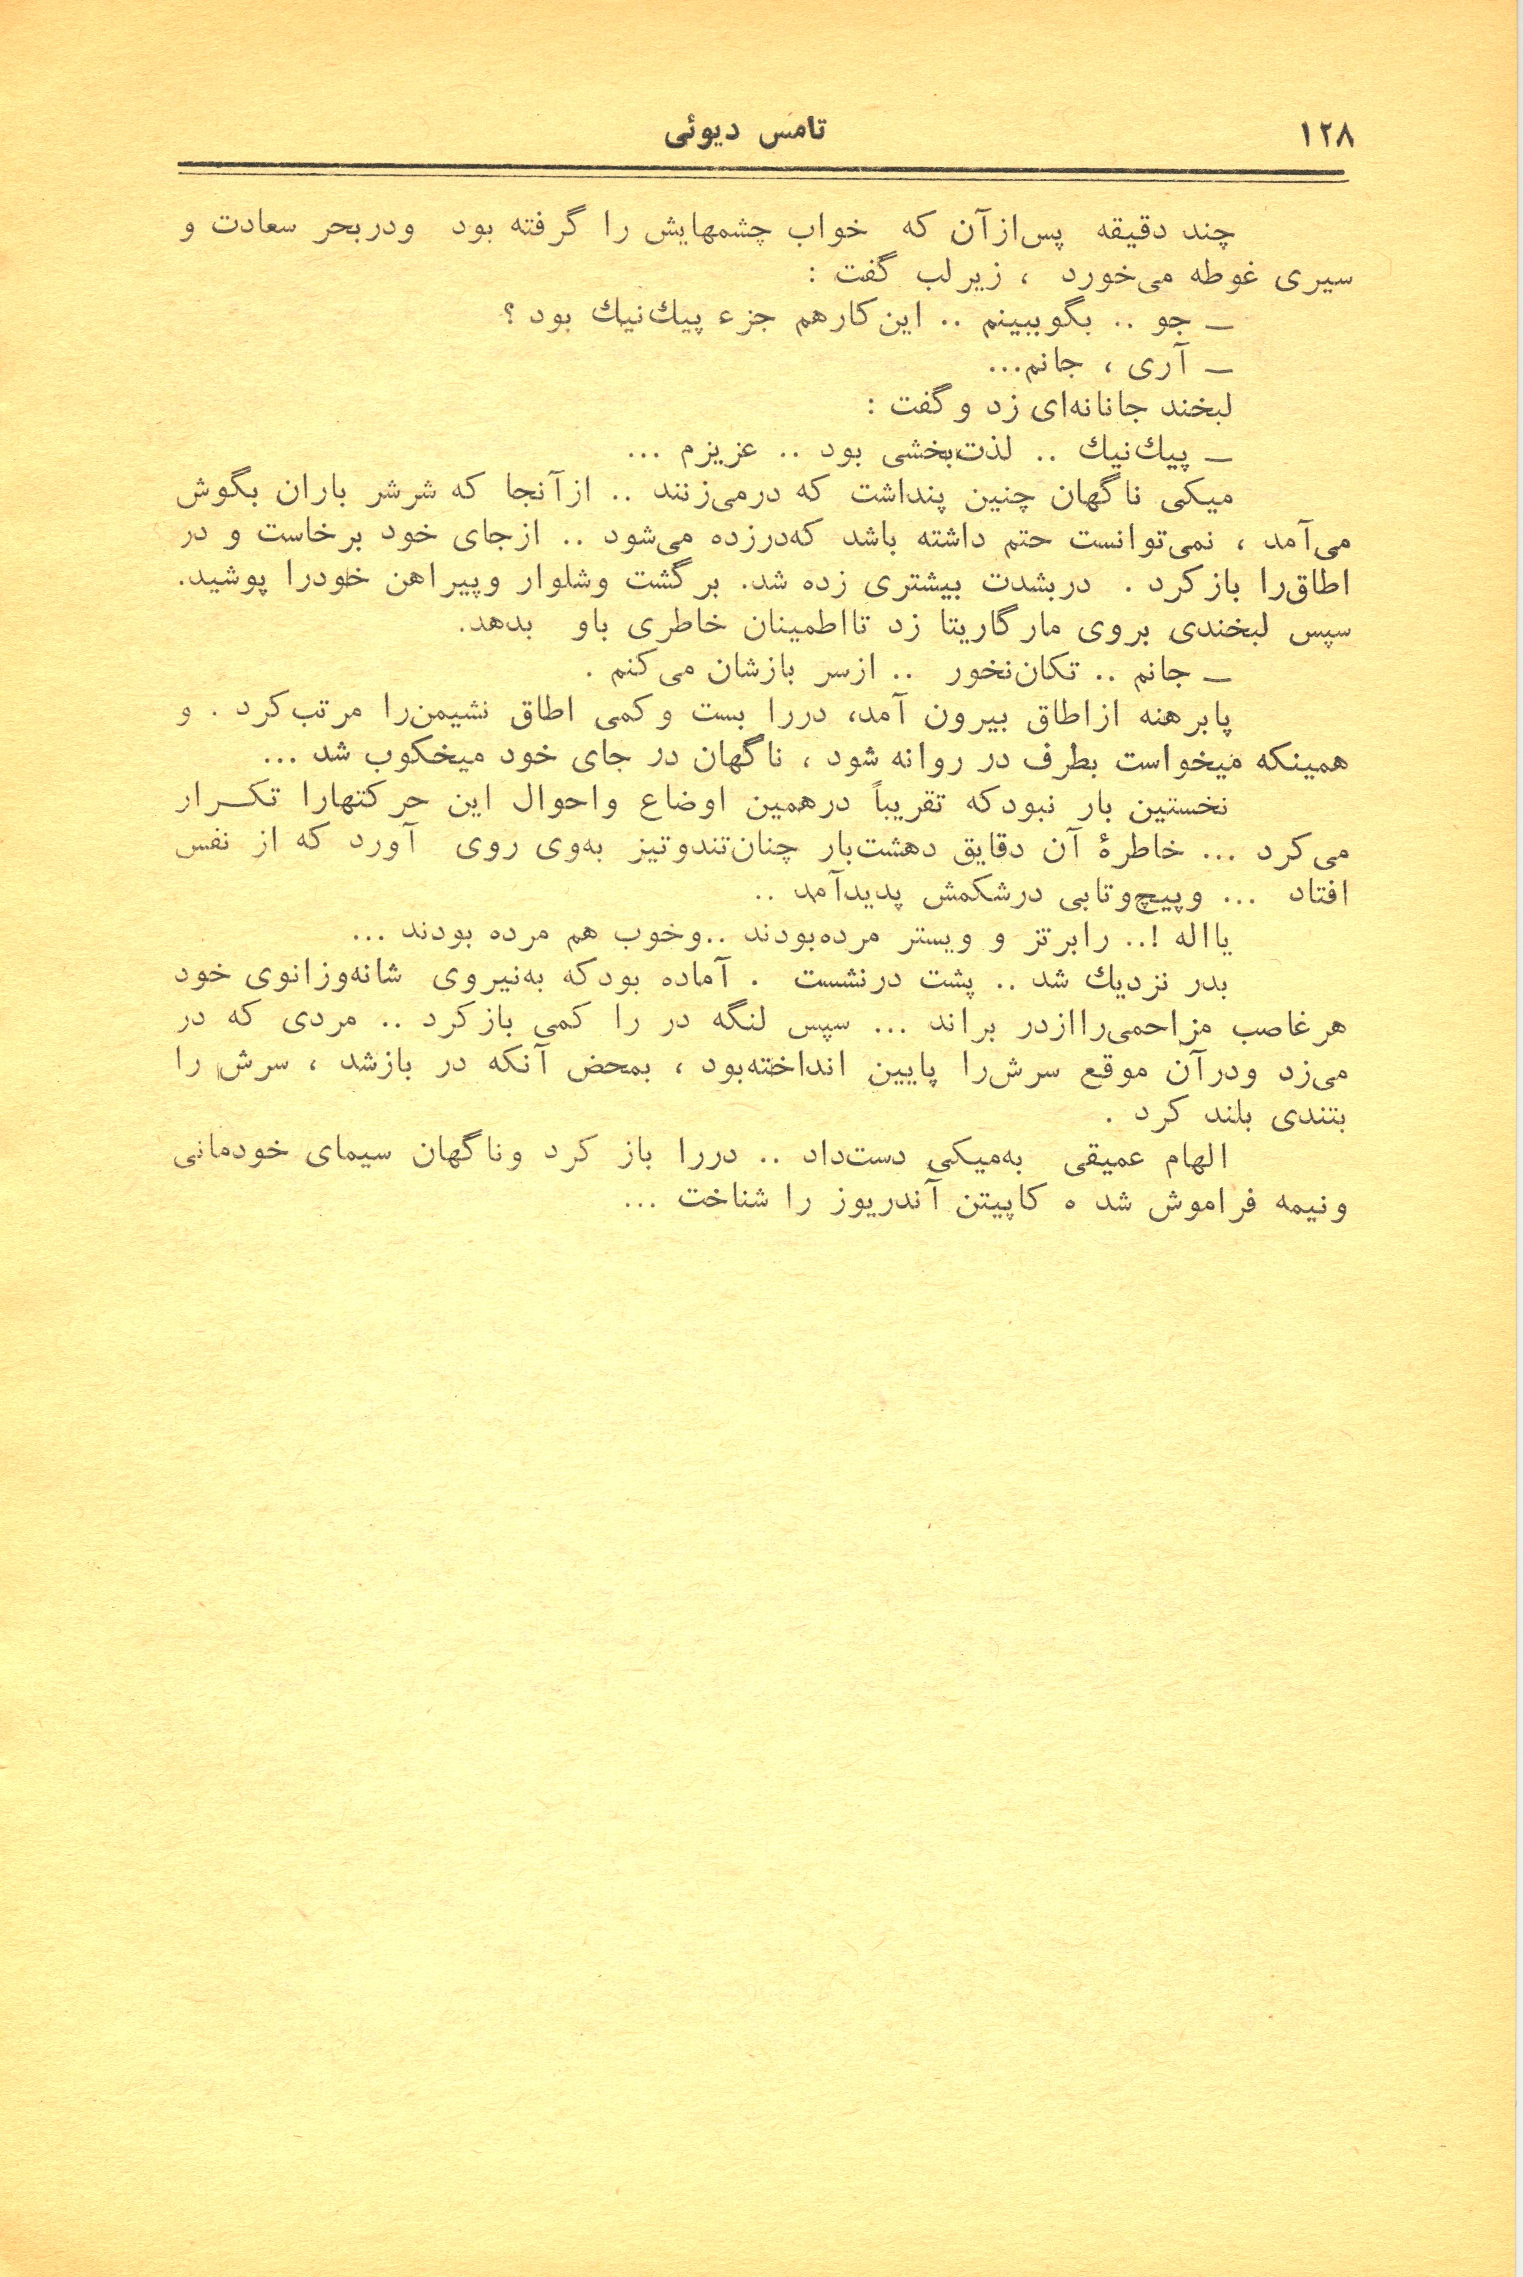 ۱۲۸
تامس دیوئی
چند دقیقه پس‌ازآن که خواب چشمهایش را گرفته بود ودربحر سعادت و
سیری غوطه می‌خورد ، زیرلب گفت :
ــ جو .. بگوببینم .. این‌کارهم جزء پیك‌نیك بود ؟
ــ آری ، جانم...
لبخند جانانه‌ای زد وگفت :
ــ پیك‌نیك .. لذت‌بخشی بود .. عزیزم ...
میکی ناگهان چنین پنداشت که درمی‌زنند .. ازآنجا که شرشر باران بگوش
می‌آمد ، نمی‌توانست حتم داشته باشد که‌درزده می‌شود .. ازجای خود برخاست و در
اطاق‌را بازکرد . دربشدت بیشتری زده شد. برگشت وشلوار وپیراهن خودرا پوشید.
سپس لبخندی بروی مارگاریتا زد تااطمینان خاطری باو بدهد.
ــ جانم .. تکان‌نخور .. ازسر بازشان می‌کنم .
پابرهنه ازاطاق بیرون آمد، دررا بست وکمی اطاق نشیمن‌را مرتب‌کرد . و
همینکه میخواست بطرف در روانه شود ، ناگهان در جای خود میخکوب شد ...
نخستین بار نبودکه تقریباً درهمین اوضاع واحوال این حرکتهارا تکـــرار
می‌کرد ... خاطرهٔ آن دقایق دهشت‌بار چنان‌تندوتیز به‌وی روی آورد که از نفس
افتاد ... وپیچ‌وتابی درشکمش پدیدآمد ..
یااله !.. رابرتز و ویستر مرده‌بودند ..وخوب هم مرده بودند ...
بدر نزدیك شد .. پشت درنشست . آماده بودکه به‌نیروی شانه‌وزانوی خود
هرغاصب مزاحمی‌راازدر براند ... سپس لنگه در را کمی بازکرد .. مردی که در
می‌زد ودرآن موقع سرش‌را پایین انداخته‌بود ، بمحض آنکه در بازشد ، سرش را
بتندی بلند کرد .
الهام عمیقی به‌میکی دست‌داد .. دررا باز کرد وناگهان سیمای خودمانی
ونیمه فراموش شد ه کاپیتن آندریوز را شناخت ...